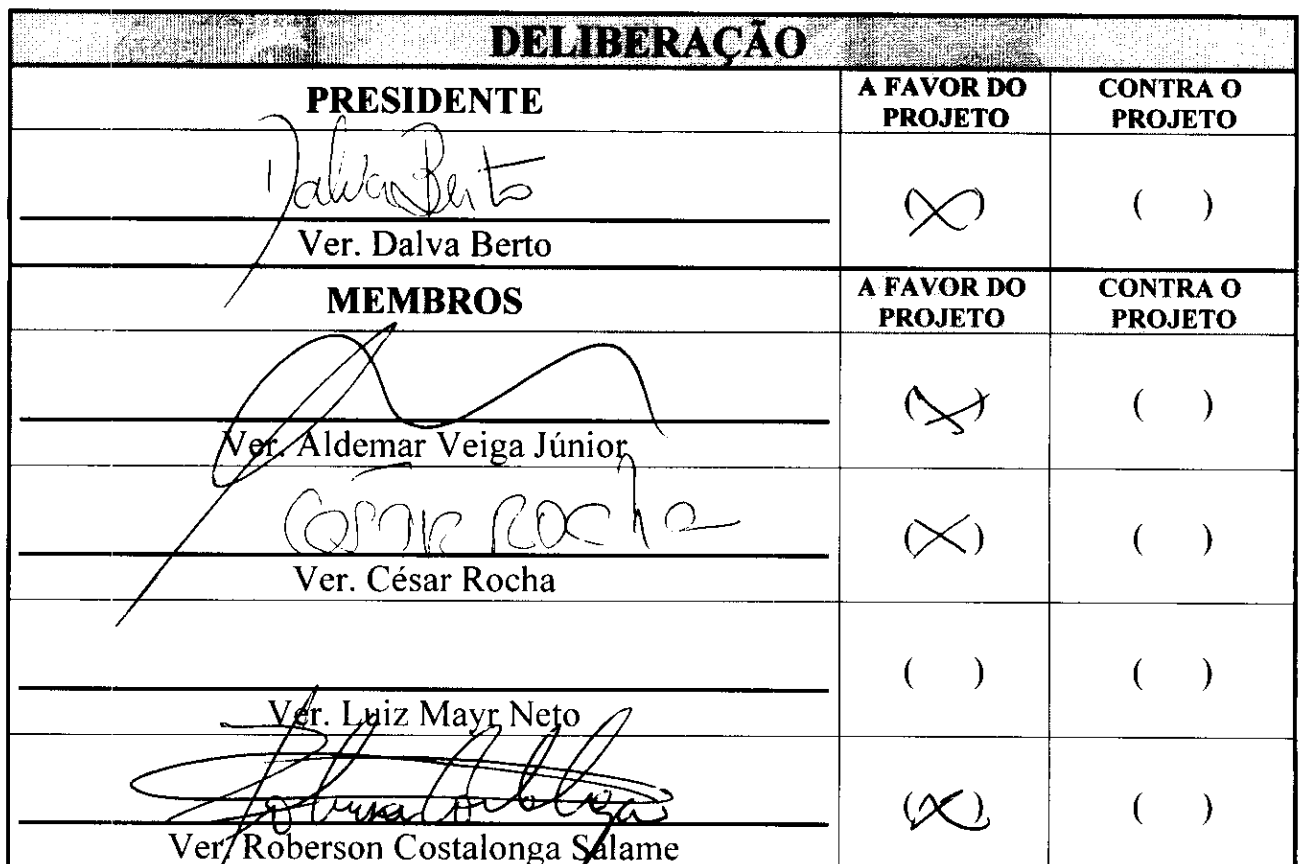 DELIBERAÇÃO
PRESIDENTE A FAVOR DO PROJETO CONTRA O PROJETO
Dalva Berto (X) ( )
Ver. Dalva Berto
MEMBROS A FAVOR DO PROJETO CONTRA O PROJETO
(X) ( )
Ver. Aldemar Veiga Júnior
César Rocha (X) ( )
Ver. César Rocha
( ) ( )
Ver. Luiz Mayr Neto
(X) ( )
Ver. Roberson Costalonga Salame